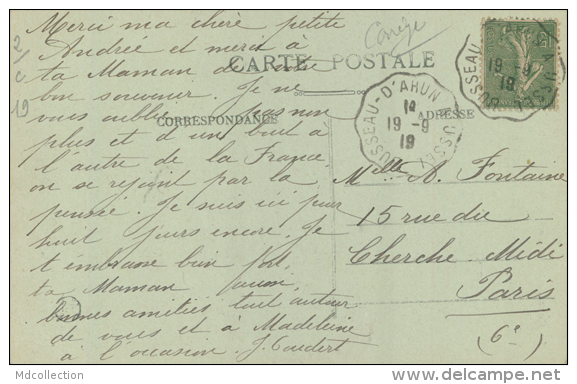 Merci ma chère petite
Andrée et merci à
ta Maman de
bon souvenir. Je ne
vous oublie pas non
plus et d'un bout à
l'autre de la France
on se rejoint par la
pensée. Je suis ici pour
huit jours encore. Je
t'embrasse bien fort,
ta Maman aussi,
bonnes amitiés tout autour
de vous et à Madeleine
à l'occasion. J.
Corrèze
19
CARTE POSTALE
CORRESPONDANCE
ADRESSE
USSEAU-D'ARUN
19 -9
19
19
19
Mlle A. Fontaine
15 rue du
Cherche-Midi
Paris
(6e)
Mdcollection
www.delcampe.net